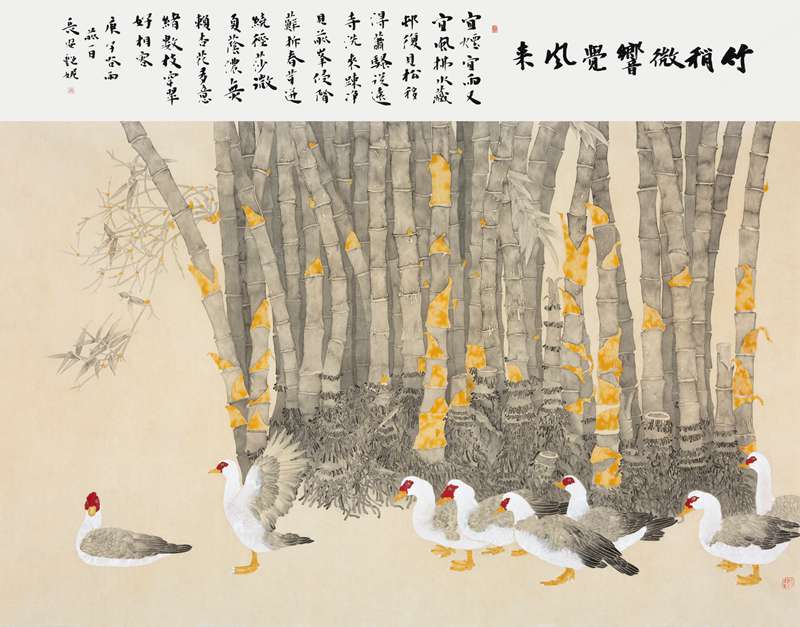 竹稍微響覺风来
宜煙宜雨又
宜風拂水藏
邨復間松移
得蕭騷従遠
寺洗来疎净
見前峯侵階
蘚拆春芽迸
繞徑莎微
夏蔭濃無
賴杏花多意
緒数枝穿翠
好相容
庚子谷雨
前一日
長安